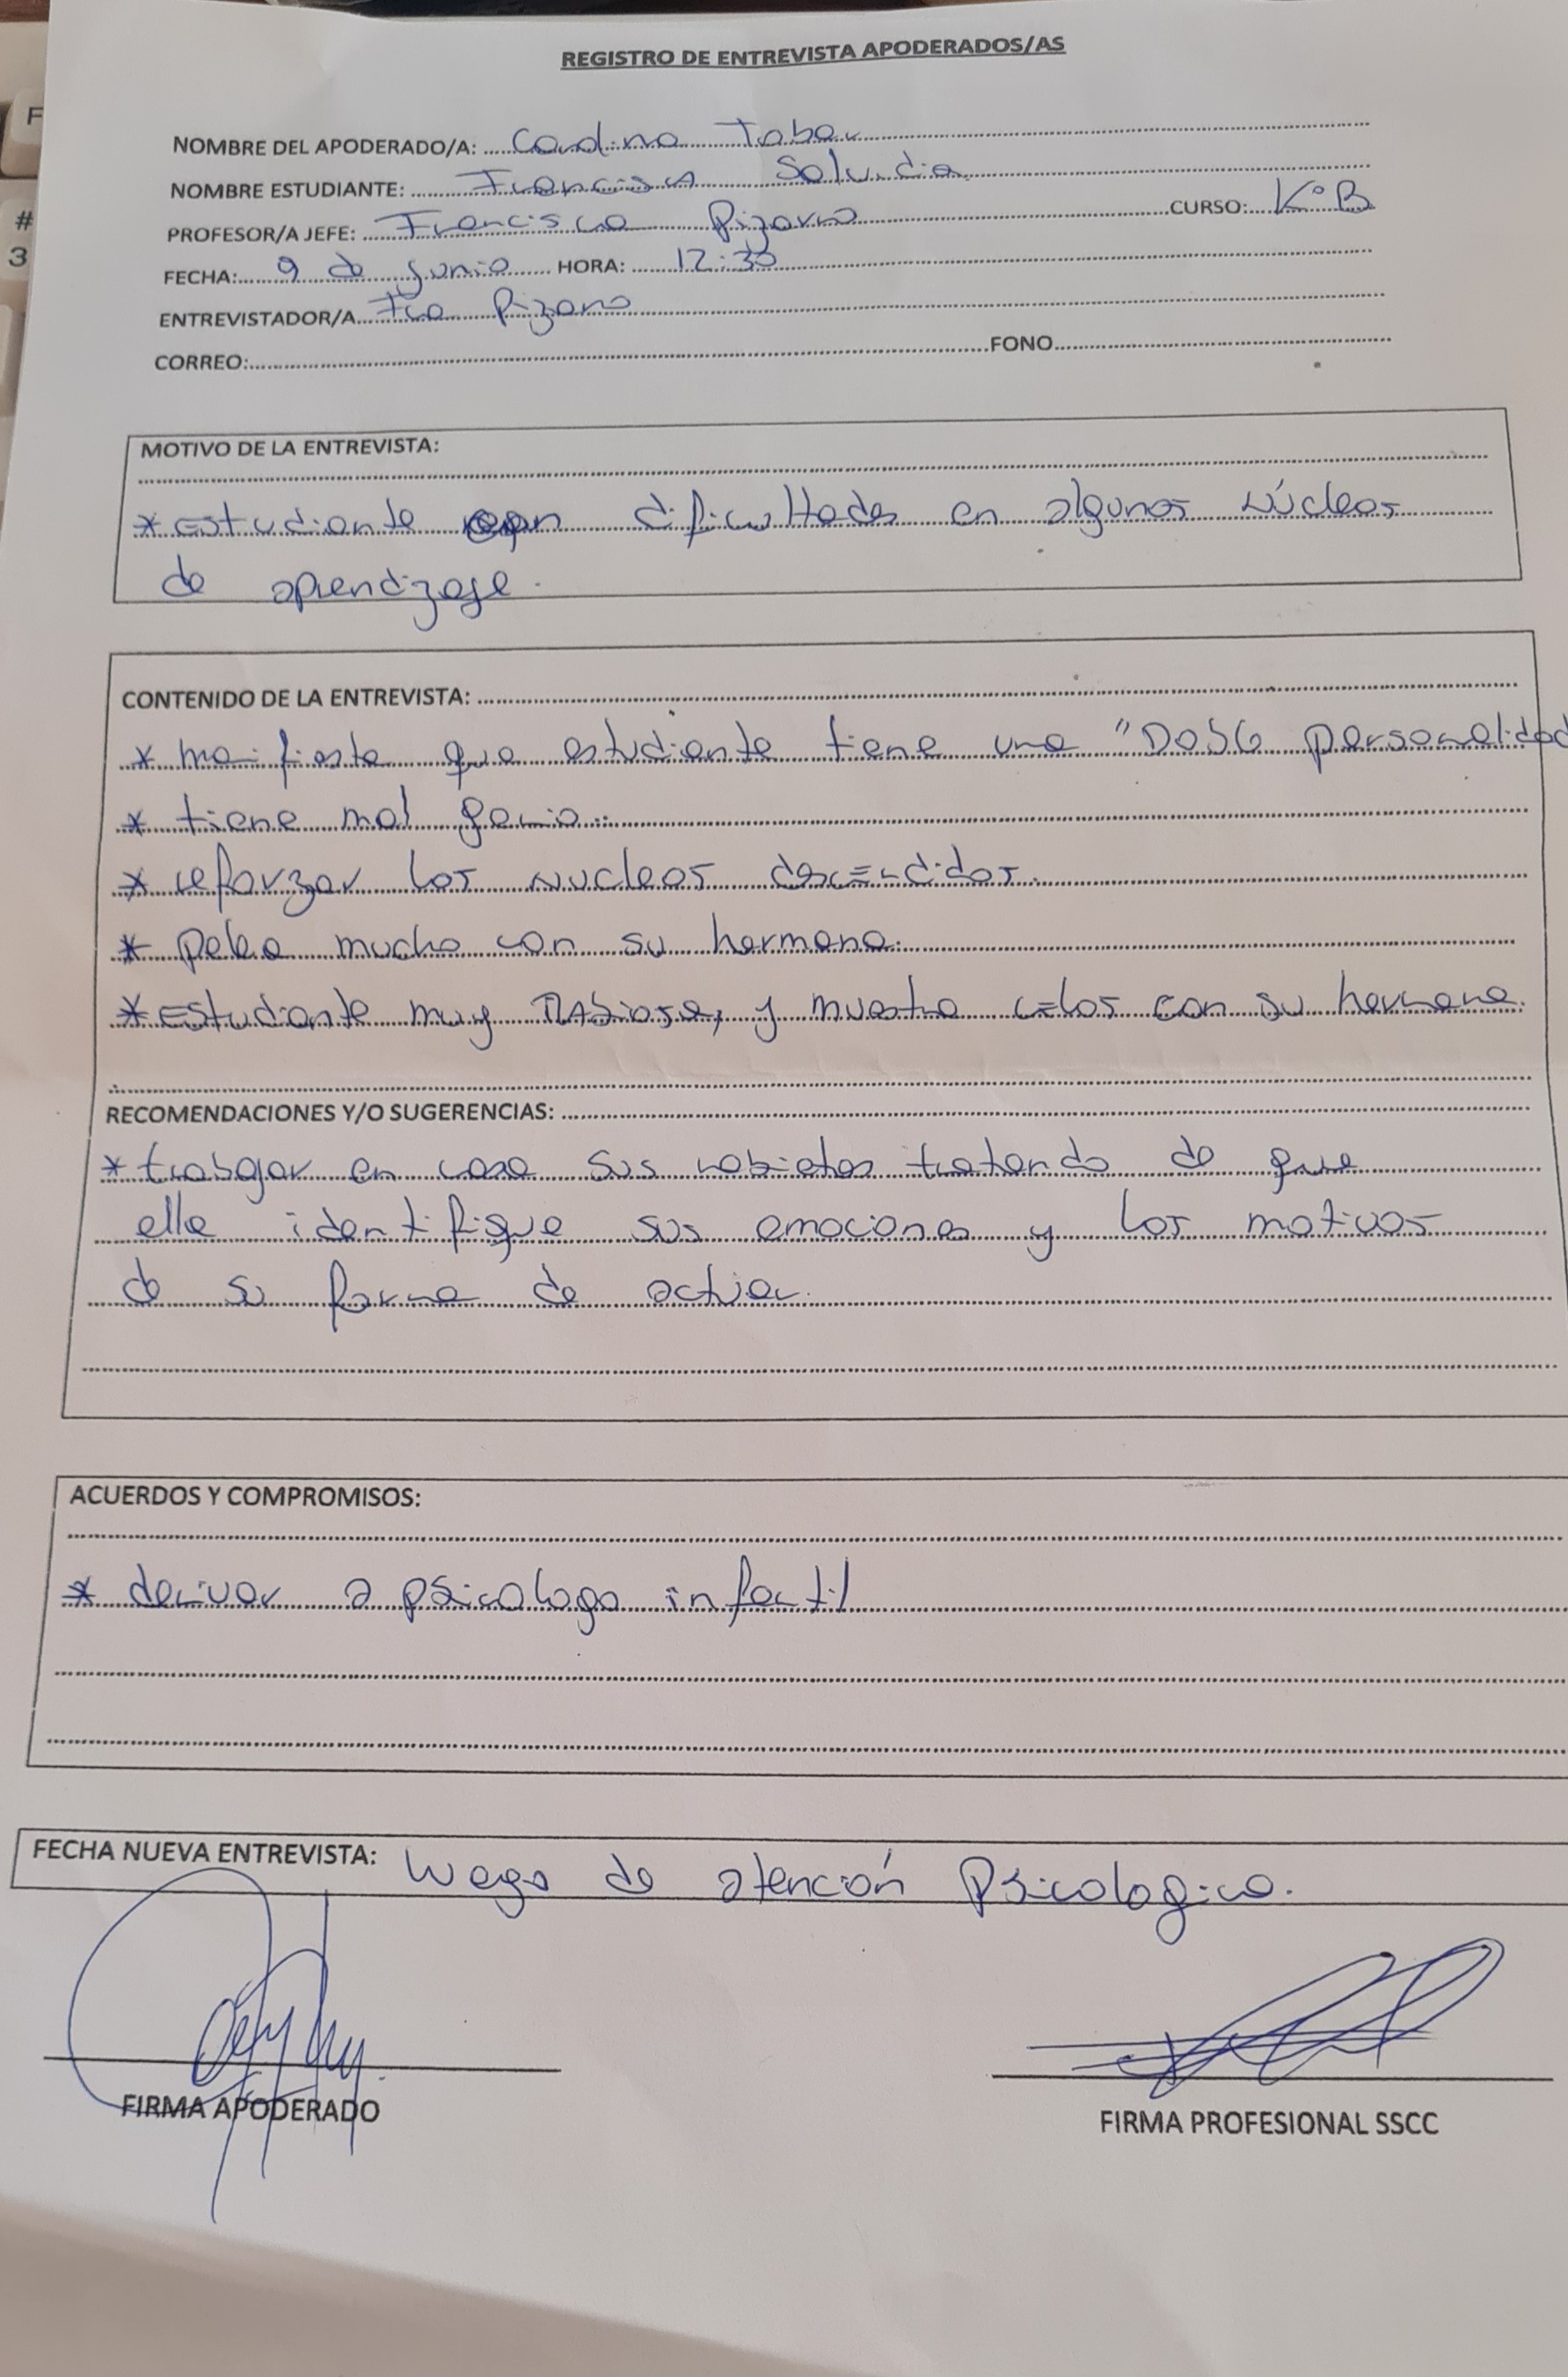 REGISTRO DE ENTREVISTA APODERADOS/AS
NOMBRE DEL APODERADO/A: Carolina Tobar
NOMBRE ESTUDIANTE: Francisca
PROFESOR/A JEFE: Francisca Pizarro CURSO: K°B
FECHA: 9 de junio HORA: 12:30
ENTREVISTADOR/A Fca Pizarro
CORREO: FONO
MOTIVO DE LA ENTREVISTA:
* Estudiante con dificultades en algunos Núcleos
de aprendizaje.
CONTENIDO DE LA ENTREVISTA:
* maifiesta que estudiante tiene una "Doble personalidad
* tiene mal genio.
* reforzar los Nucleos descendidos.
* pelea mucho con su hermana.
* Estudiante muy Rabiosa, y muestra celos con su hermana.
RECOMENDACIONES Y/O SUGERENCIAS:
* trabajar en casa sus rabietas tratando de que
ella identifique sus emociones y los motivos
de su forma de actuar.
ACUERDOS Y COMPROMISOS:
* derivar a psicologo infantil
FECHA NUEVA ENTREVISTA: luego de atención Psicologica.
FIRMA APODERADO
FIRMA PROFESIONAL SSCC
F
#
3